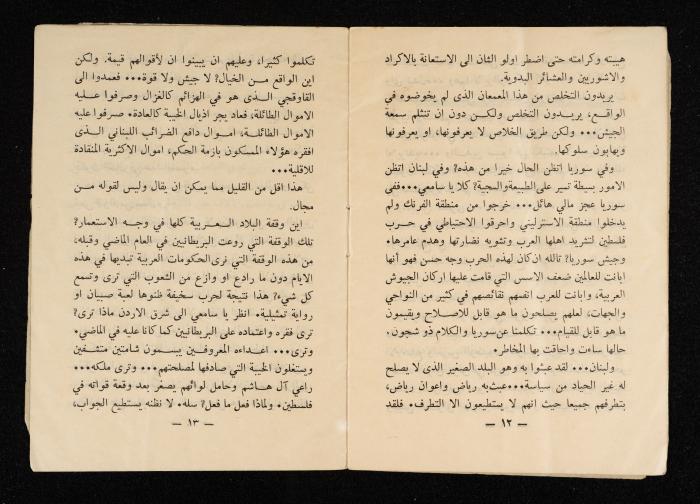 هيبته وكرامته حتى اضطر اولو الشان الى الاستعانة بالاكراد
والاشوريين والعشائر البدوية.
يريدون التخلص من هذا المعمعان الذى لم يخوضوه في
الواقع، يريدون التخلص ولكن دون ان تنثلم سمعة
الجيش... ولكن طريق الخلاص لا يعرفونها، او يعرفونها
ويهابون سلوكها.
وفي سوريا اتظن الحال خيرا من هذه؟ وفي لبنان اتظن
الامور بسيطة تسير على الطبيعة والسجية؟ كلا يا سامعي... ففى
سوريا عجز مالي هائل... خرجوا من منطقة الفرنك ولم
يدخلوا منطقة الاسترليني واحرقوا الاحتياطي في حرب
فلسطين لتشريد اهلها العرب وتشويه نضارتها وهدم عامرها.
وجيش سوريا؟ تالله ان كان لهذه الحرب وجه حسن فهو أنها
ابانت للعالمين ضعف الاسس التي قامت عليها اركان الجيوش
العربية، وابانت للعرب انفسهم نقائصهم في كثير من النواحي
والجهات، لعلهم يصلحون ما هو قابل للاصلاح ويقيمون
ما هو قابل للقيام... تكلمنا عن سوريا والكلام ذو شجون.
حالها ساءت واحاقت بها المخاطر.
ولبنان... لقد عبثوا به وهو البلد الصغير الذى لا يصلح
له غير الحياد من سياسة... عبث به رياض واعوان رياض،
بتطرفهم جميعا حيث انهم لا يستطيعون الا التطرف. فلقد
— ١٢ —
تكلموا كثيرا، وعليهم ان يبينوا ان لأقوالهم قيمة. ولكن
اين الواقع من الخيال؟ لا جيش ولا قوة... فعمدوا الى
القاوقجي الذى هو في الهزائم كالغزال وصرفوا عليه
الاموال الطائلة، فعاد يجر اذيال الخيبة كالعادة. صرفوا عليه
الاموال الطائلة، اموال دافع الضرائب اللبناني الذى
افقره هؤلاء الممسكون بازمة الحكم، اموال الاكثرية المنقادة
للاقلية...
هذا اقل من القليل مما يمكن ان يقال وليس لقوله من
مجال.
اين وقفة البلاد العربية كلها في وجه الاستعمار؟
تلك الوقفة التي روعت البريطانيين في العام الماضي وقبله،
من هذه الوقفة التي نرى الحكومات العربية تبديها في هذه
الايام دون ما رادع او وازع من الشعوب التي ترى وتسمع
كل شيء؟ هذا نتيجة لحرب سخيفة ظنوها لعبة صبيان او
رواية تمثيلية. انظر يا سامعي الى شرق الاردن ماذا ترى؟
ترى فقره واعتماده على البريطانيين كما كانا عليه في الماضي.
وترى... اعداءه المعروفين يبسمون شامتين متشفين
ويستغلون الخيبة التي صادفها لمصلحتهم... وترى ملكه...
راعي آل هاشم وحامل لوائهم يصغر بعد وقعة قواته في
فلسطين. ولماذا فعل ما فعل؟ سله. لا نظنه يستطيع الجواب،
— ١٣ —